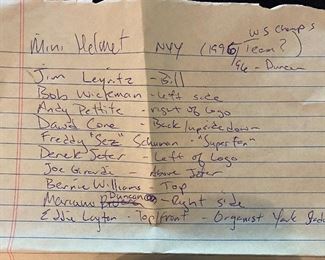 WS Champs
Mini Helmet NYY (1996 Team?)
96 - Duncan
Jim Leyritz - Bill
Bob Wickman - left side
Andy Pettite - right of logo
David Cone - Back/upside down
Freddy "Sez" Schuman - "Superfan"
Derek Jeter - Left of Logo
Joe Girardi - Above Jeter
Bernie Williams - Top
Mariano Duncan - Right side
Eddie Layton - Top/front - Organist Yank